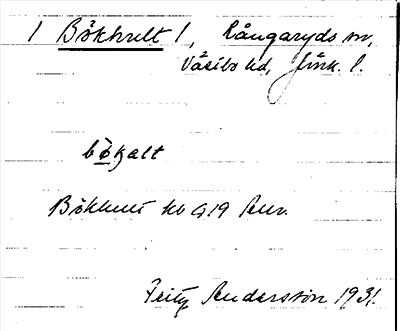 1 Bökhult 1, Långaryds sn,
Västbo hd, Jönk. l.
bö̀kalt
Bökhult kb G19 Serv.
Fritz Andersson 1931.